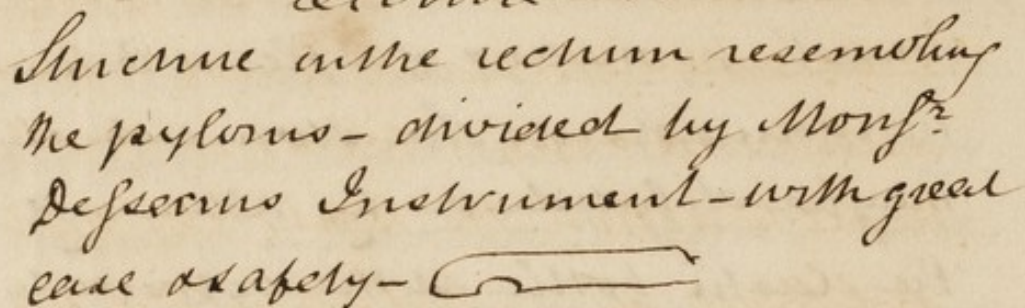 Structure in the rectum resembling
the pylorus – divided by Monsr.
Instrument – with great
ease & safety –